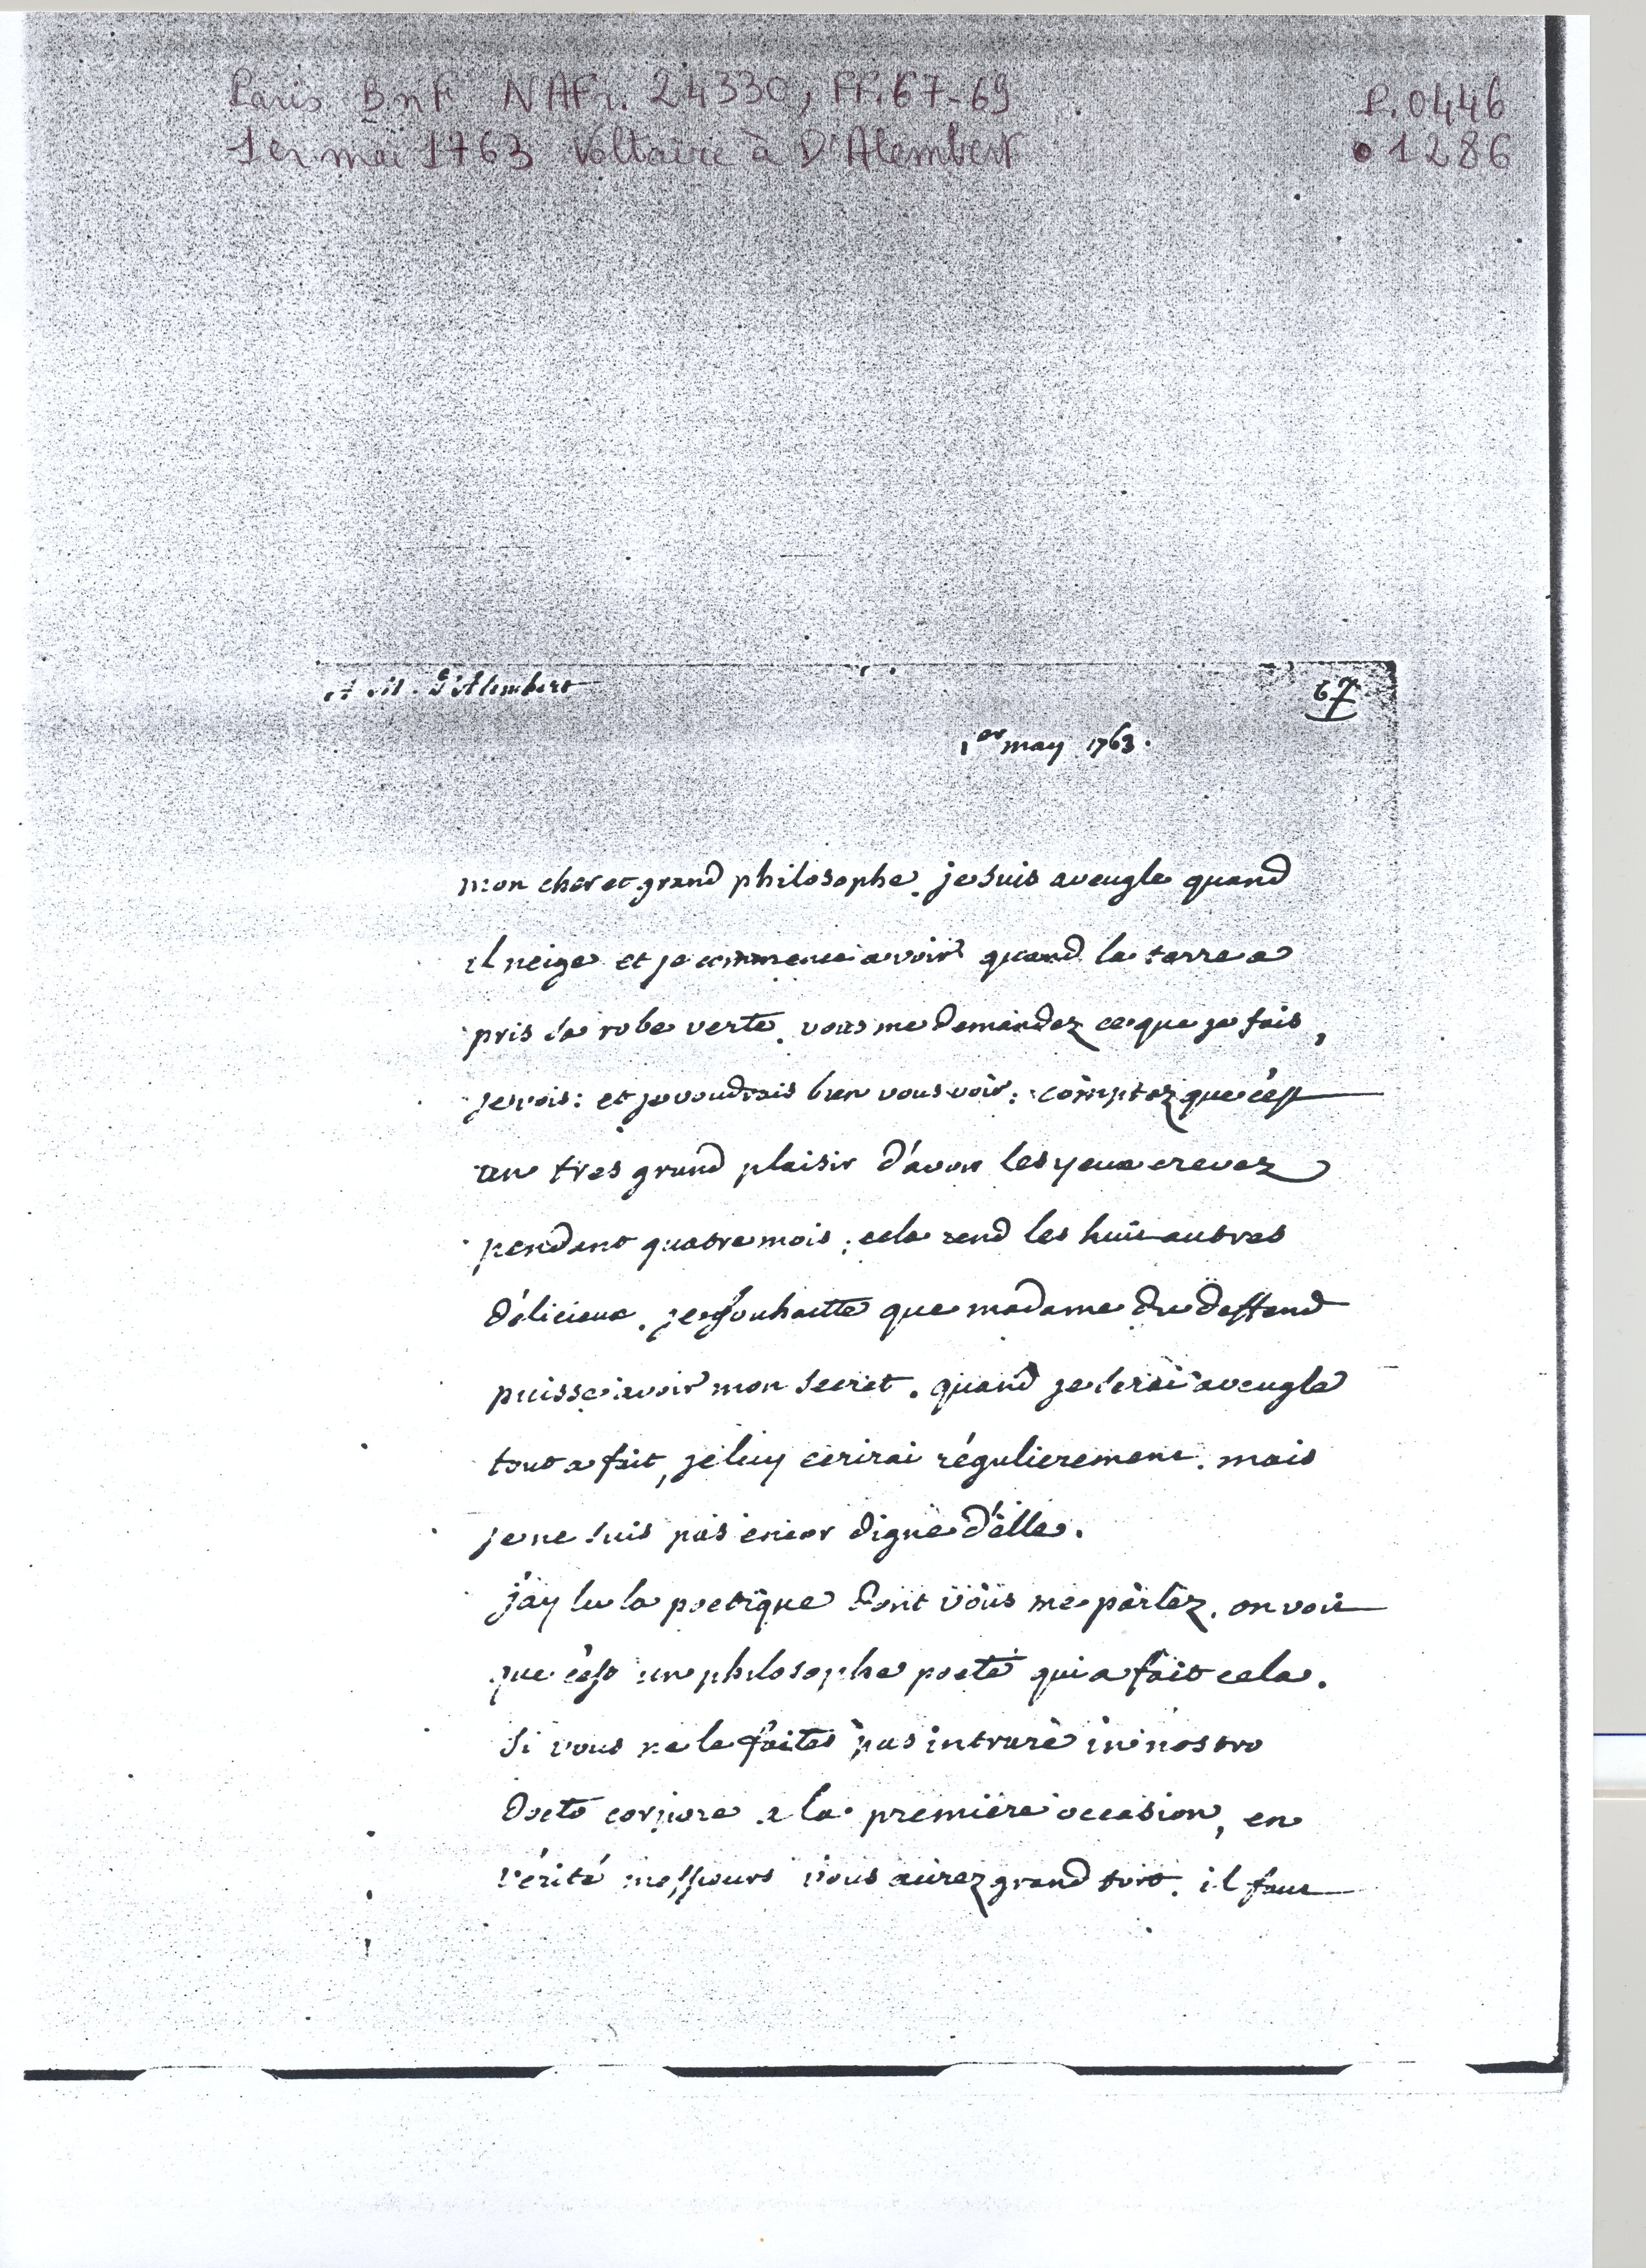 Paris BnF NAFr. 24330, FF.67-69
P.0446
1er mai 1763 Voltaire à D'Alembert
1286
A M. D'Alembert
67
1er may 1763.
mon cher et grand philosophe. je suis aveugle quand
il neige et je commence a voir quand la terre a
pris sa robe verte. vous me demandez ce que je fais,
je vois: et je voudrais bien vous voir: comptez que c'est
un tres grand plaisir d'avoir les yeux crevez
pendant quatre mois; cela rend les huit autres
délicieux. je souhaitte que madame du deffend
puisse avoir mon secret. quand je serai aveugle
tout a fait, je luy ecrirai régulierement. mais
je ne suis pas encor digne d'elle.
j'ay lu la poetique dont vous me parlez. on voit
que c'est un philosophe poete qui a fait cela.
Si vous ne le faites pas intrare in nostro
docto corpore a la premiere occasion, en
vérité messieurs vous aurez grand tort. il faut